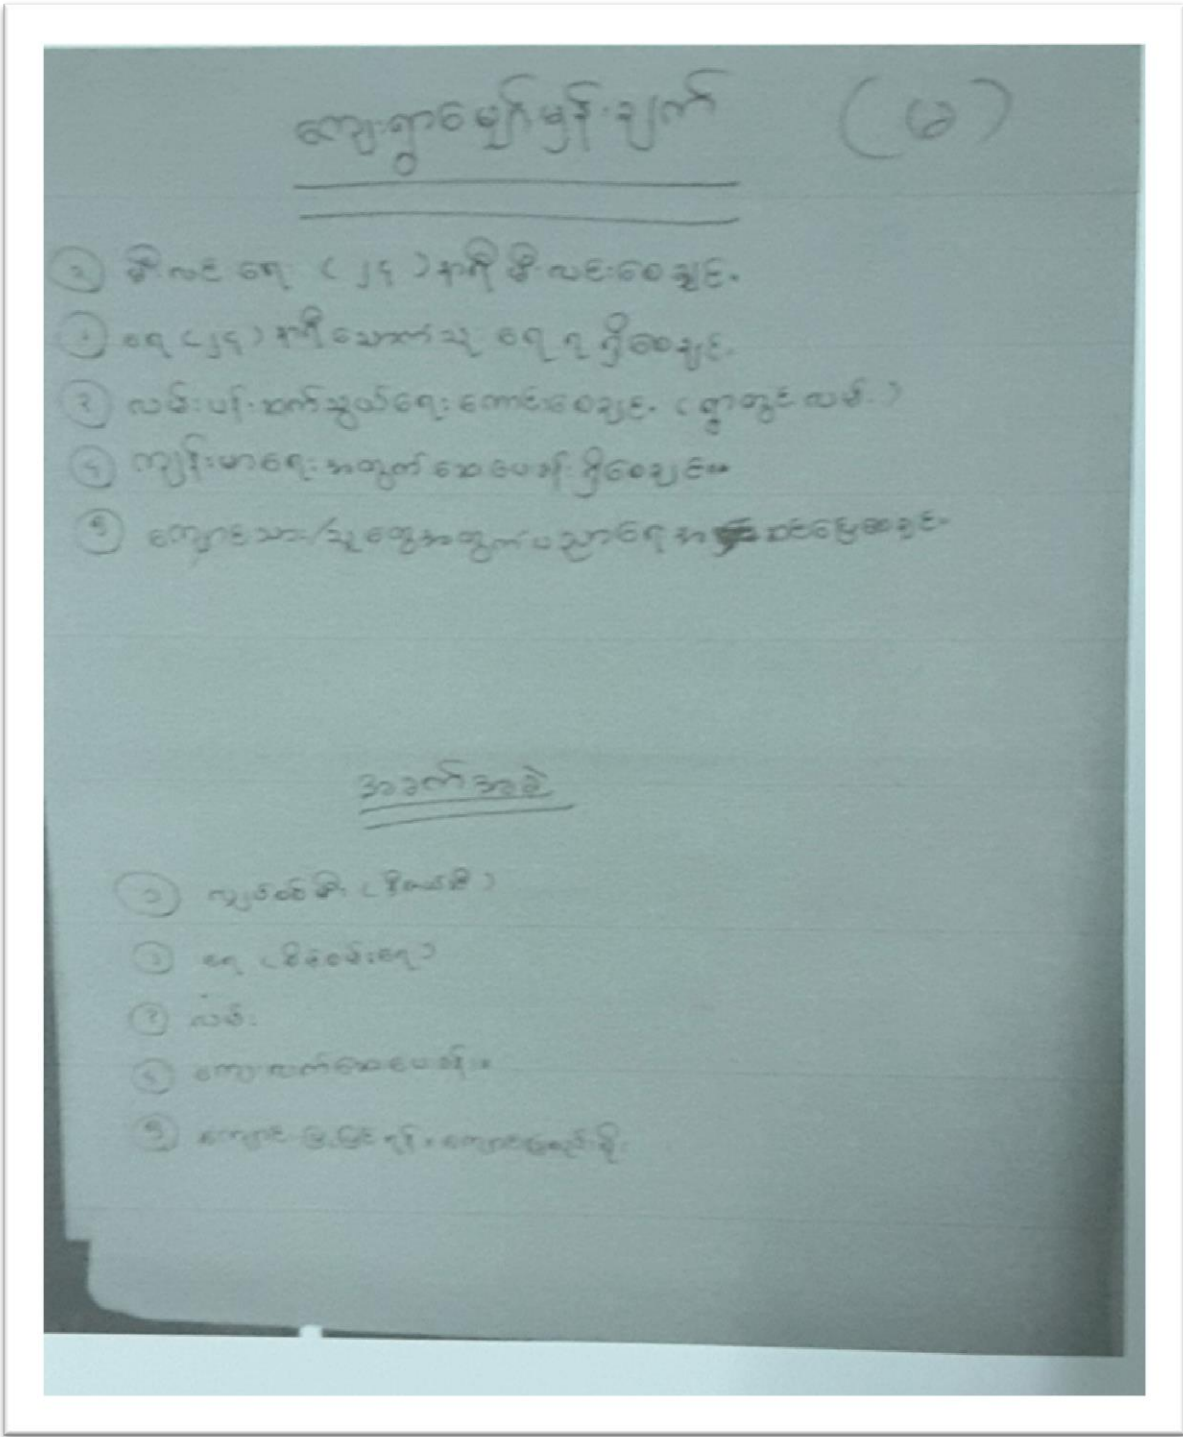 ကျေးရွာမျှော်မှန်းချက် (မ)
၁ မီးလင်းရေး (၂၄) နာရီ မီးလင်းစေချင်း
၂ ရေ (၂၄) နာရီသောက်သုံးရေ ရရှိစေချင်း
၃ လမ်းပန်းဆက်သွယ်ရေးကောင်းစေချင်း (ရွာတွင်းလမ်း)
၄ ကျန်းမာရေးအတွက် ဆေးပေးခန်းရှိစေချင်း။
၅ ကျောင်းသား/သူတွေအတွက် ပညာရေး
အခက်အခဲ
၁ လျှပ်စစ်မီး
၂ ရေ (စိမ့်စမ်းရေ)
၃ လမ်း
၄ ကျေးလက်ဆေးပေးခန်း။
၅ ကျောင်း